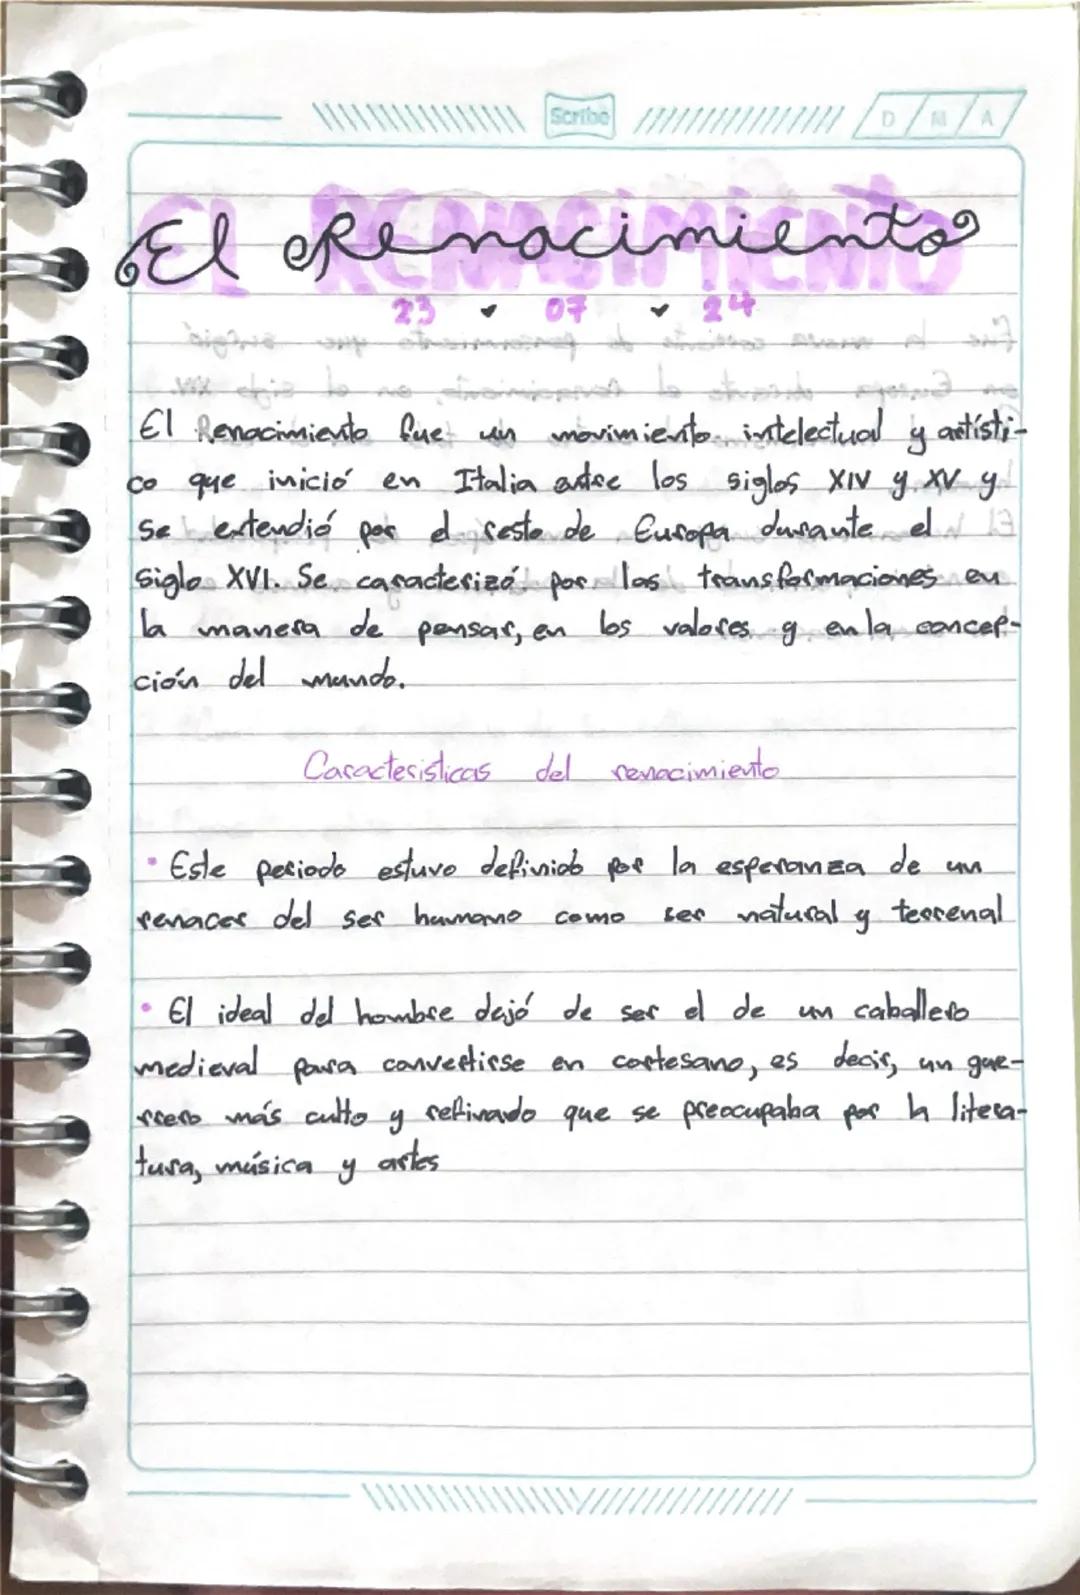 Scribe
D / M / A
El Renacimiento
23 07 24
El Renacimiento fue un movimiento intelectual y artísti-
co que inició en Italia entre los siglos XIV y XV y
se extendió por el resto de Europa durante el
siglo XVI. Se caracterizó por las transformaciones en
la manera de pensar, en los valores y en la concep-
ción del mundo.
Caracteristicas del renacimiento
• Este periodo estuvo definido por la esperanza de un
renacer del ser humano como ser natural y terrenal
• El ideal del hombre dejó de ser el de un caballero
medieval para convertirse en cortesano, es decir, un gue-
rrero más culto y refinado que se preocupaba por la litera-
tura, música y artes